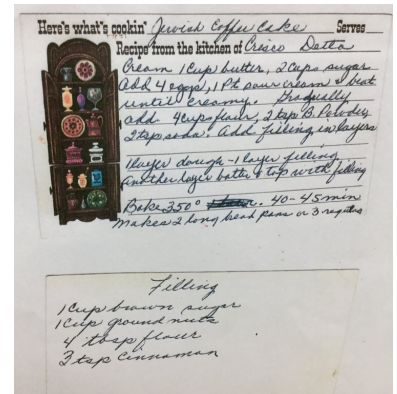 Here's what's cookin' Jewish Coffee Cake Serves
Recipe from the kitchen of Cresco Detta
Cream 1 Cup butter, 2 Cups sugar
Add 4 eggs, 1 Pt sour cream & beat
until creamy. Gradually
add 4 cups flour, 2 tsp B. Powder
2 tsp soda. Add filling in layers
1 layer dough - 1 layer filling
another layer batter & top with filling
Bake 350° 40-45 min
Makes 2 long bread pans or 3 regular
Filling
1 Cup brown sugar
1 Cup ground nuts
4 tbsp flour
3 tsp Cinnamon